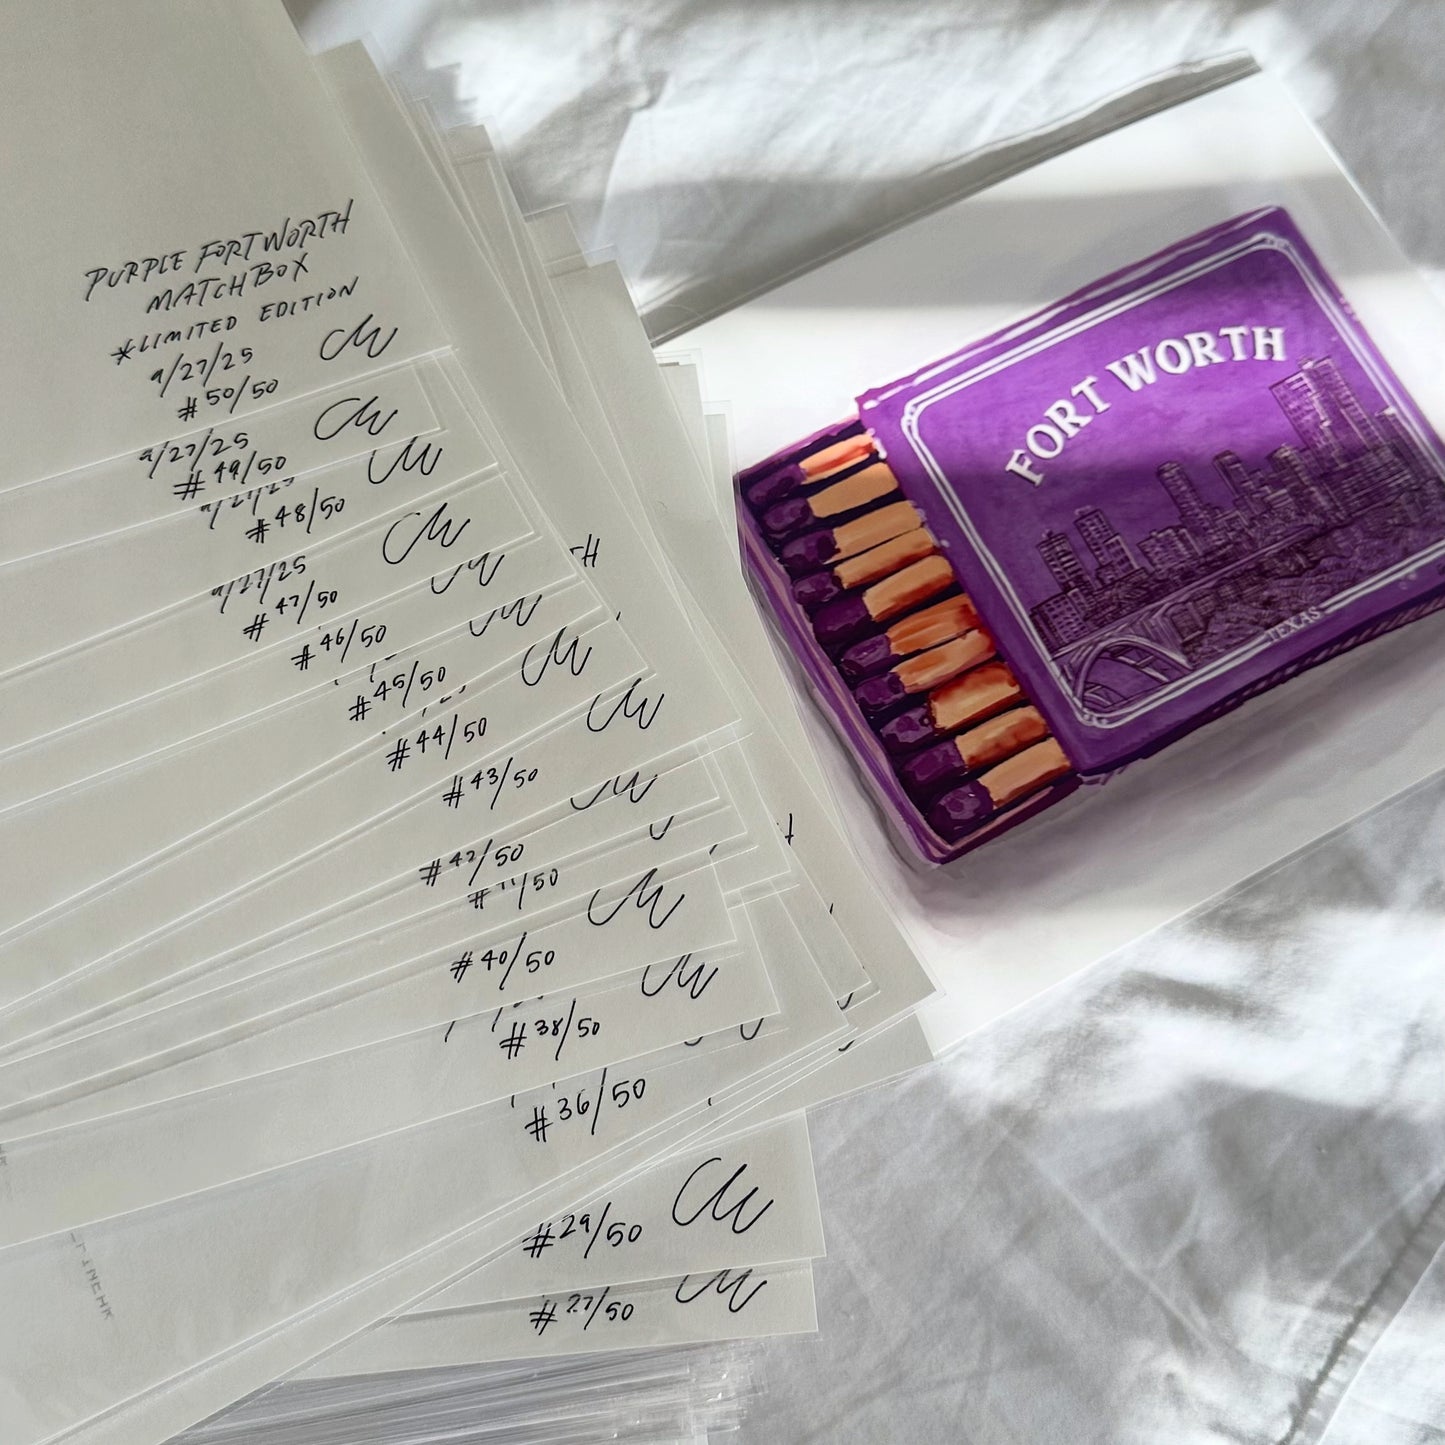 PURPLE FORT WORTH
MATCHBOX
*LIMITED EDITION
9/27/25
#50/50
9/27/25
#49/50
9/27/25
#48/50
9/27/25
#47/50
#46/50
#45/50
#44/50
#43/50
#42/50
/50
#40/50
#38/50
#36/50
#29/50
#27/50
FORT WORTH
TEXAS